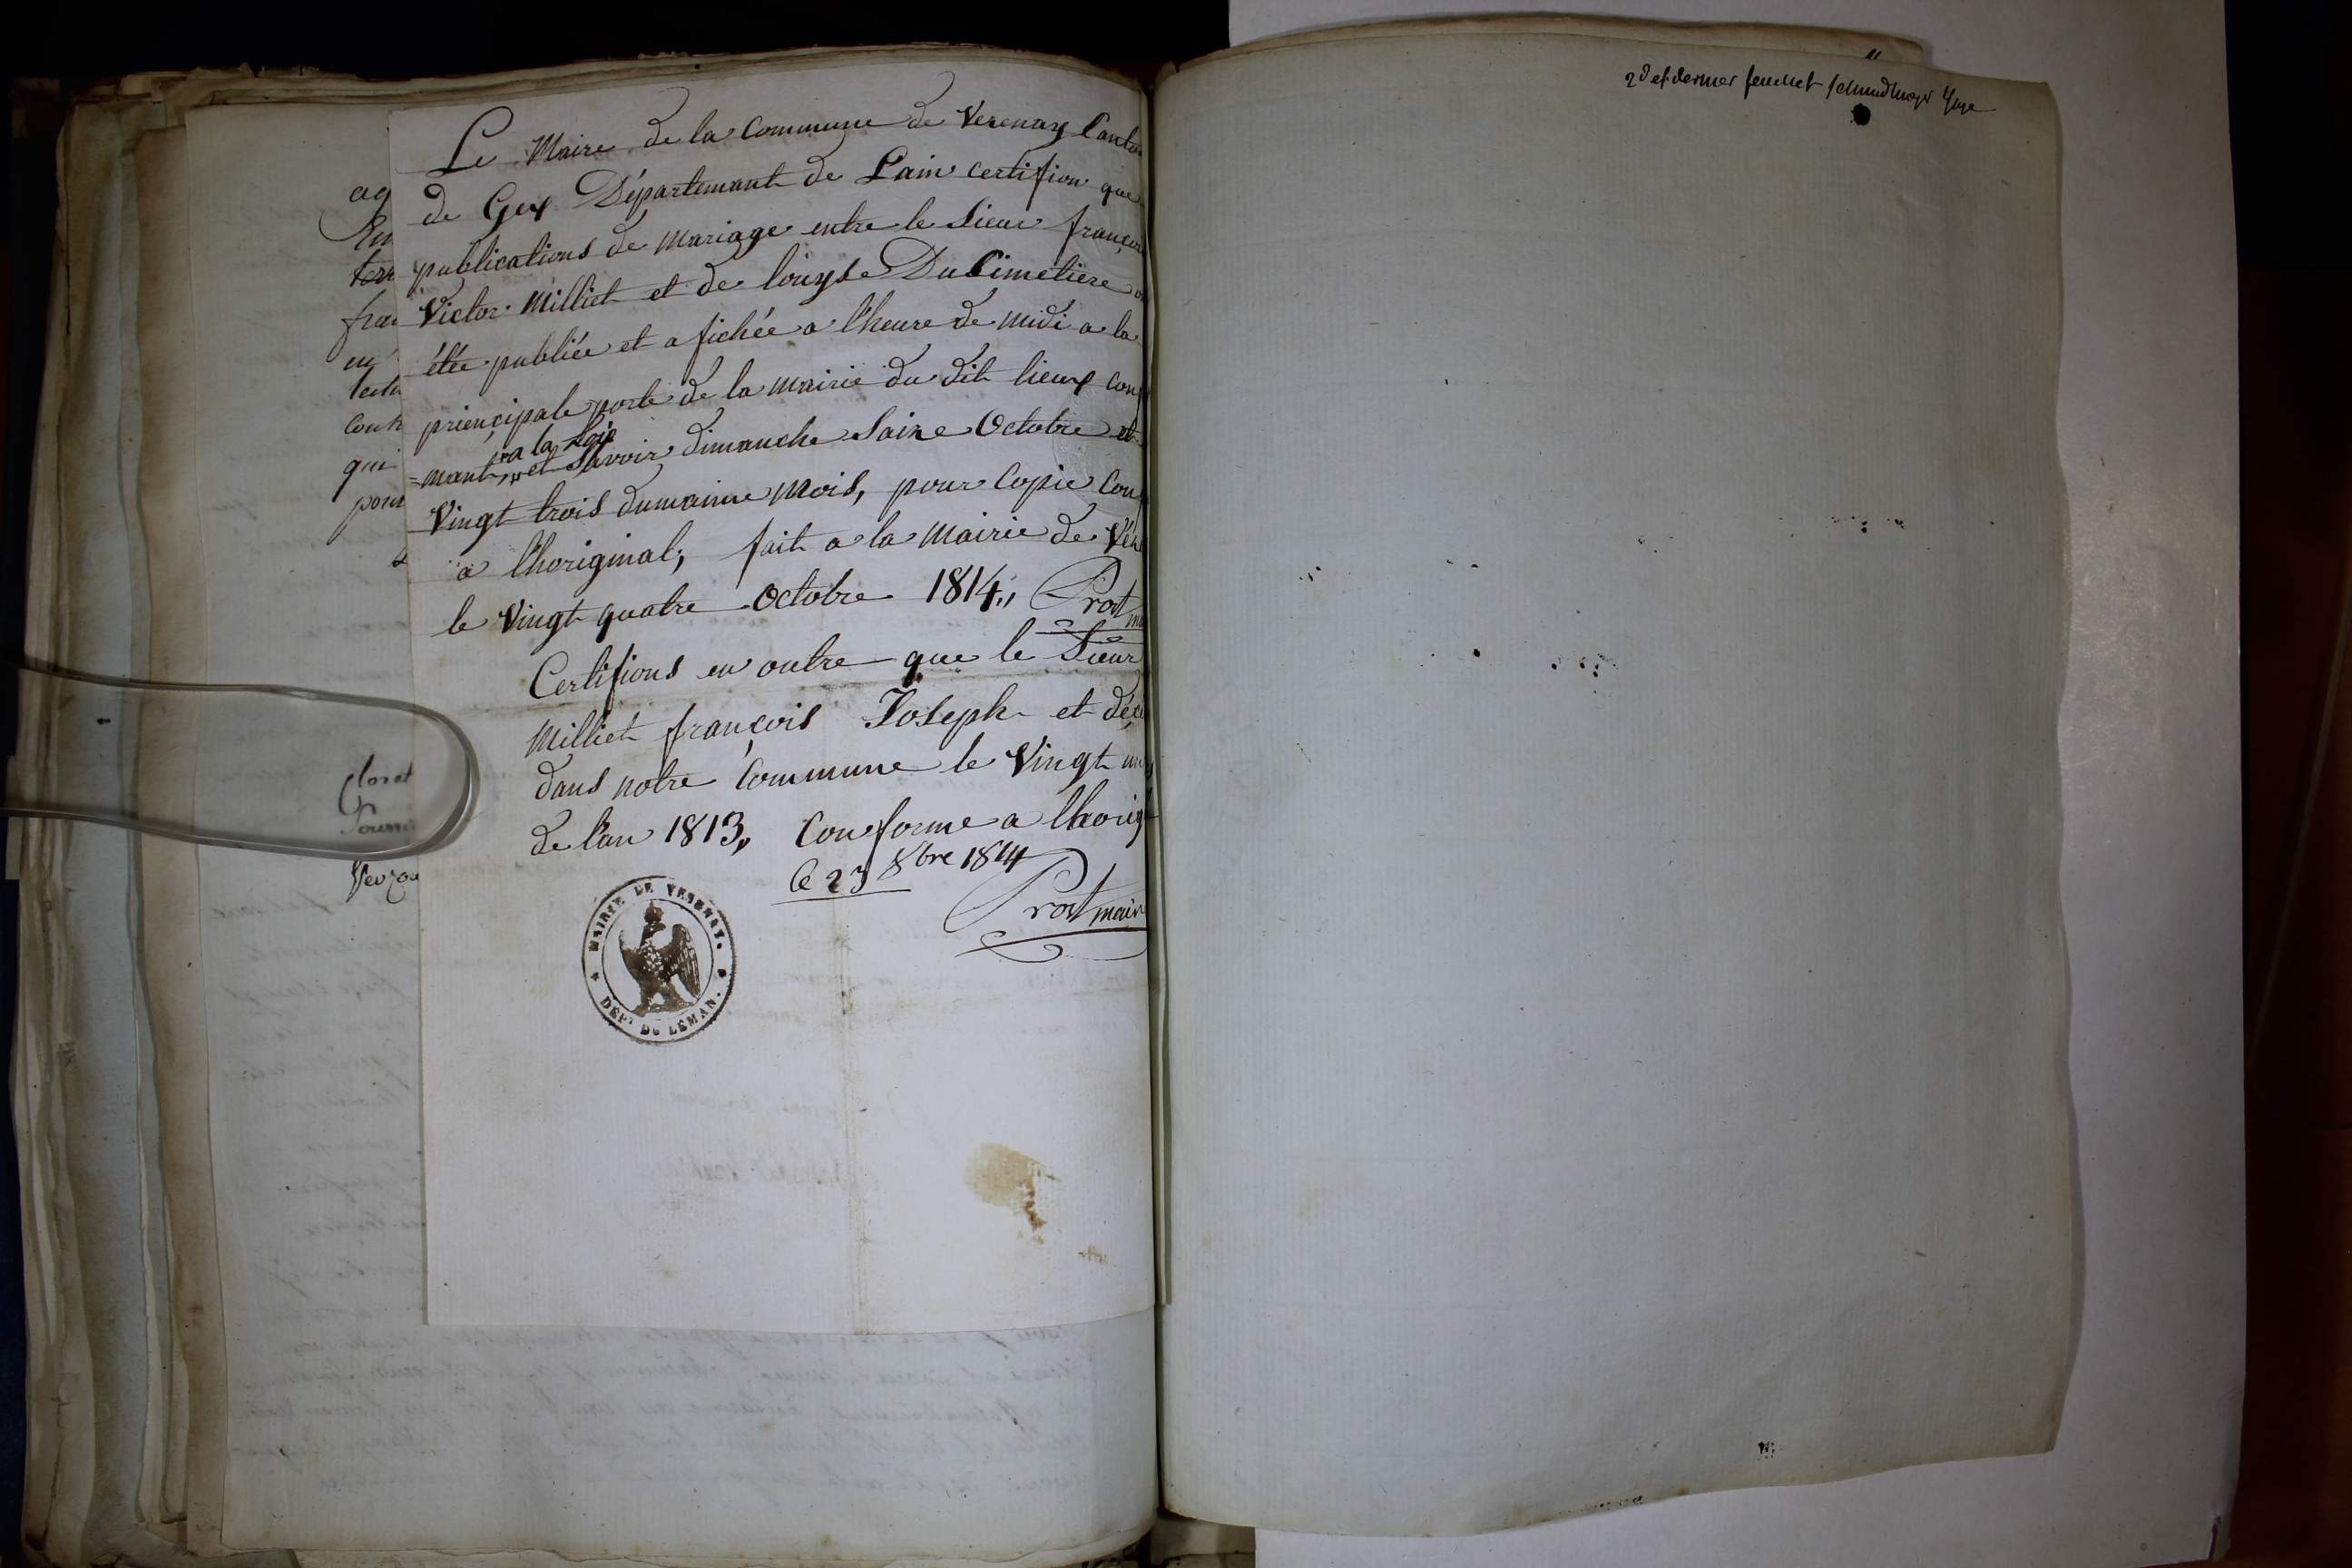 Le Maire de la Commune de Vezenay Canton
de Gex Département de Lain certifion que
publications de mariage entre le Sieur françois
Victor Milliet et de louyse Du Cimetiere
étée publiée et a fichée a l'heure de midi a la
priençipale porte de la mairie du dit lieux con
a la loix
=mant, et Savoir dimanche Saize Octobre et
Vingt trois dumaime mois, pour Copie Con
a l'horiginal; fait a la Mairie de Véz
le Vingt quatre Octobre 1814,, Prost
Certifions en outre que le Sieur
Milliet françois Joseph et déc
dans notre Commune le Vingt un
de l'an 1813,, Conforme a lhorig
Ce 23 8bre 1814
Prost maire
MAIRIE DE VESENAY.
DEPT DU LÉMAN.
ag
En
terr
frai
en
cont
qui
pour
Cloret
Verzou
2d et dernier feuillet